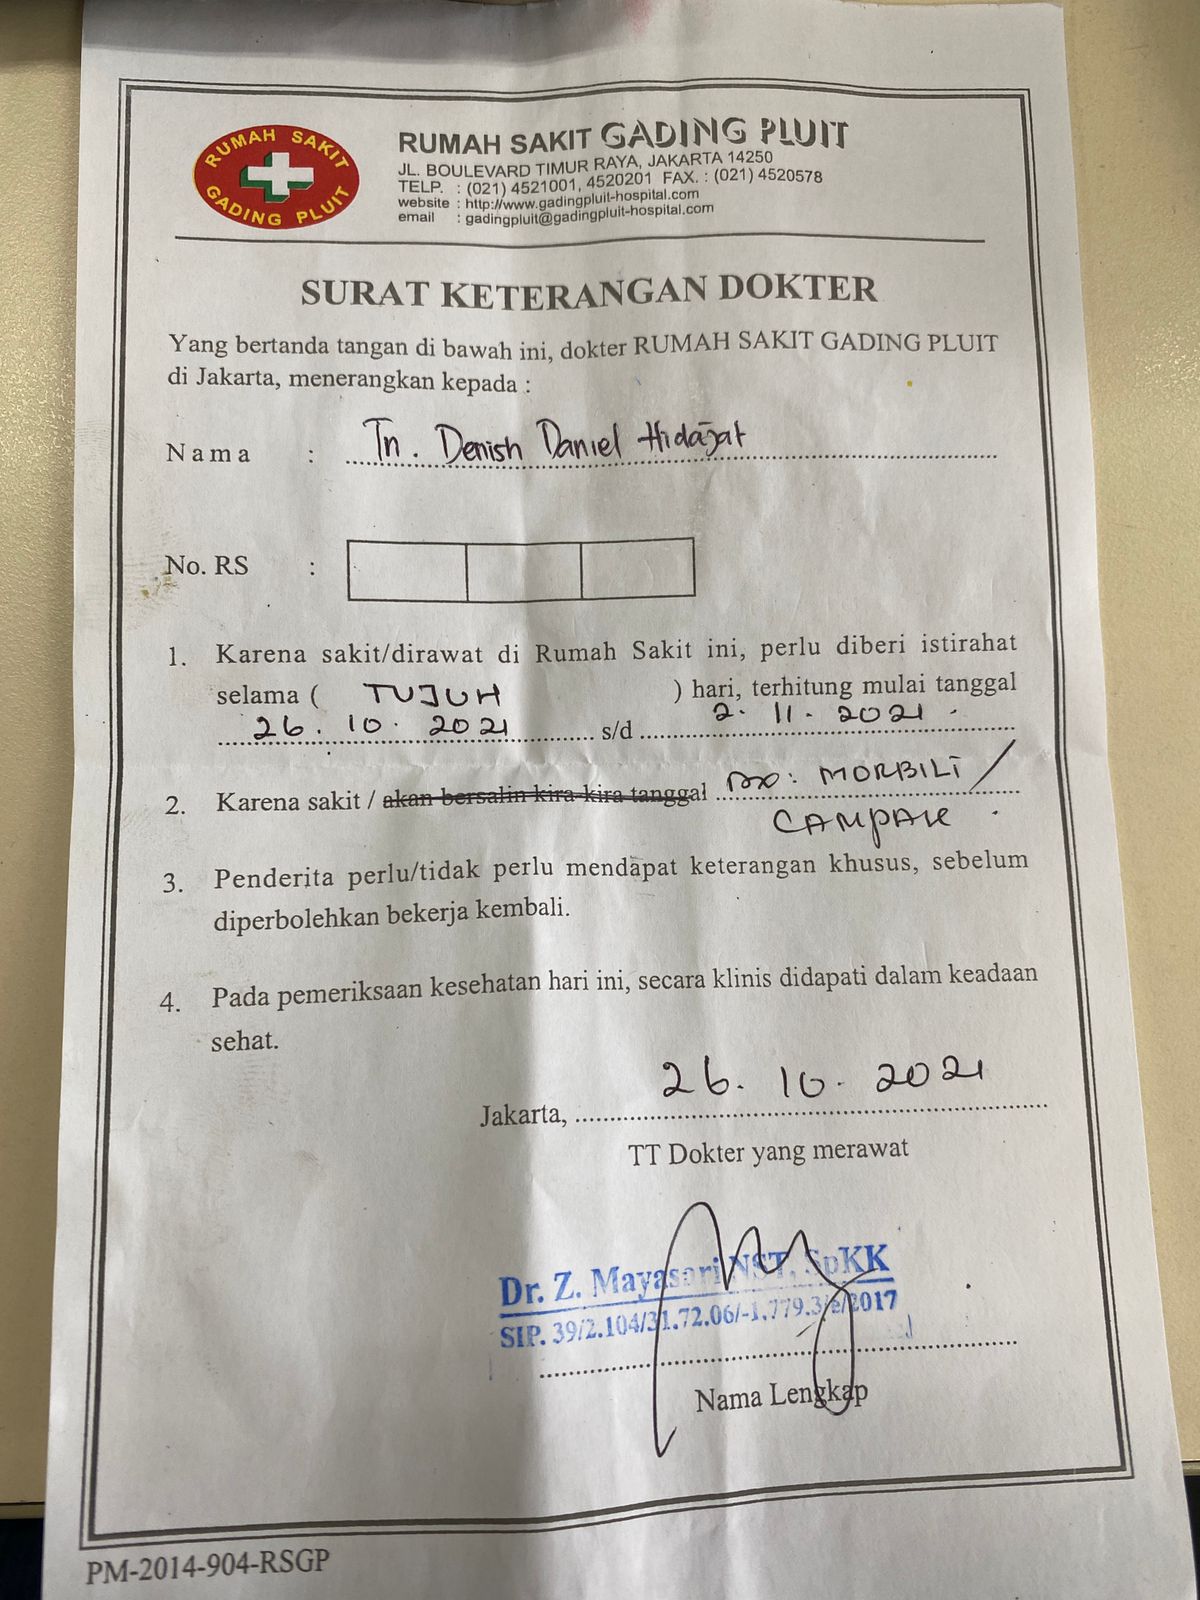 RUMAH SAKIT
GADING PLUIT
RUMAH SAKIT GADING PLUIT
JL. BOULEVARD TIMUR RAYA, JAKARTA 14250
TELP. : (021) 4521001, 4520201 FAX. : (021) 4520578
website : http://www.gadingpluit-hospital.com
email : gadingpluit@gadingpluit-hospital.com
SURAT KETERANGAN DOKTER
Yang bertanda tangan di bawah ini, dokter RUMAH SAKIT GADING PLUIT
di Jakarta, menerangkan kepada :
Nama : Tn. Denish Daniel Hidajat
No. RS :
1. Karena sakit/dirawat di Rumah Sakit ini, perlu diberi istirahat
selama ( TUJUH ) hari, terhitung mulai tanggal
26. 10. 2021 s/d 2. 11. 2021.
2. Karena sakit / akan bersalin kira-kira tanggal Dx: MORBILI /
CAMPAK.
3. Penderita perlu/tidak perlu mendapat keterangan khusus, sebelum
diperbolehkan bekerja kembali.
4. Pada pemeriksaan kesehatan hari ini, secara klinis didapati dalam keadaan
sehat.
Jakarta, 26. 10. 2021
TT Dokter yang merawat
Dr. Z. Mayasari NST, SpKK
SIP. 39/2.104/31.72.06/-1.779.3/e/2017
Nama Lengkap
PM-2014-904-RSGP